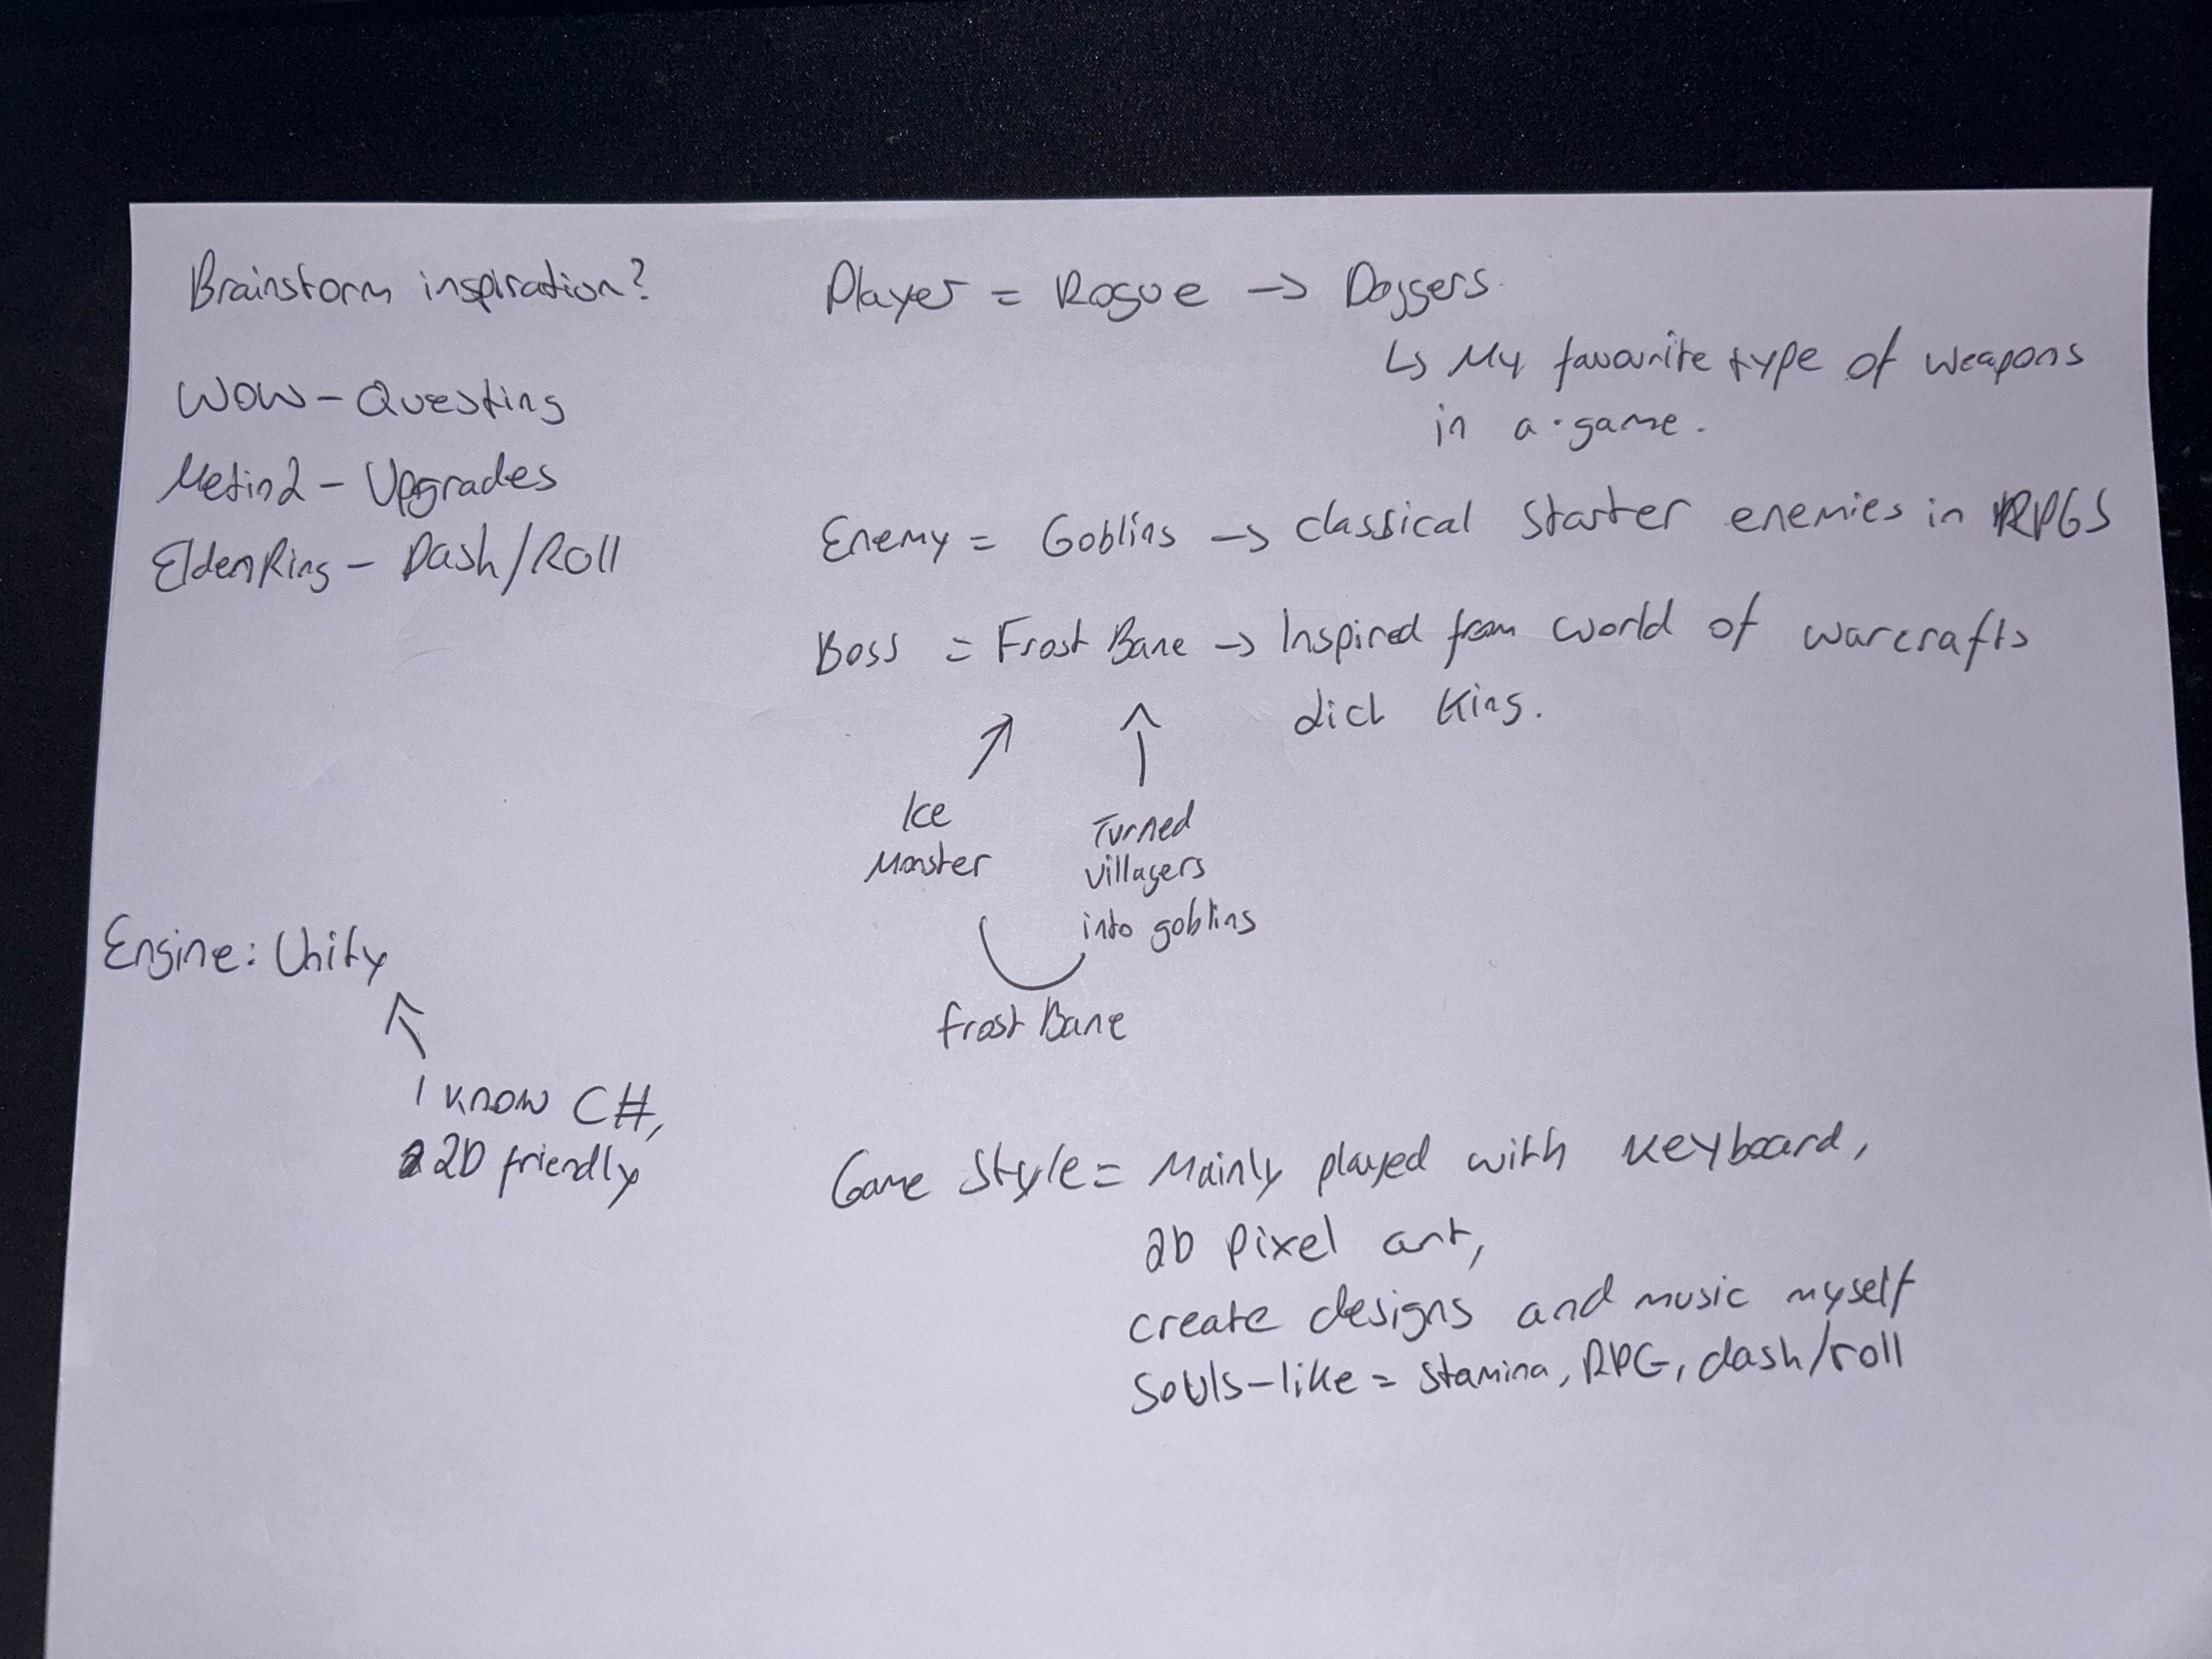 Brainstorm inspiration?
WOW - Questing
Metin2 - Upgrades
EldenRing - Dash/Roll
Engine: Unity
I know C#,
2D friendly
Player = Rogue → Daggers.
↳ My favourite type of weapons
in a game.
Enemy = Goblins → classical starter enemies in RPGS
Boss = Frost Bane → Inspired from world of warcrafts
Lich King.
Ice
Monster
Turned
villagers
into goblins
Frost Bane
Game Style = Mainly played with keyboard,
2D pixel art,
create designs and music myself
Souls-like = Stamina, RPG, dash/roll